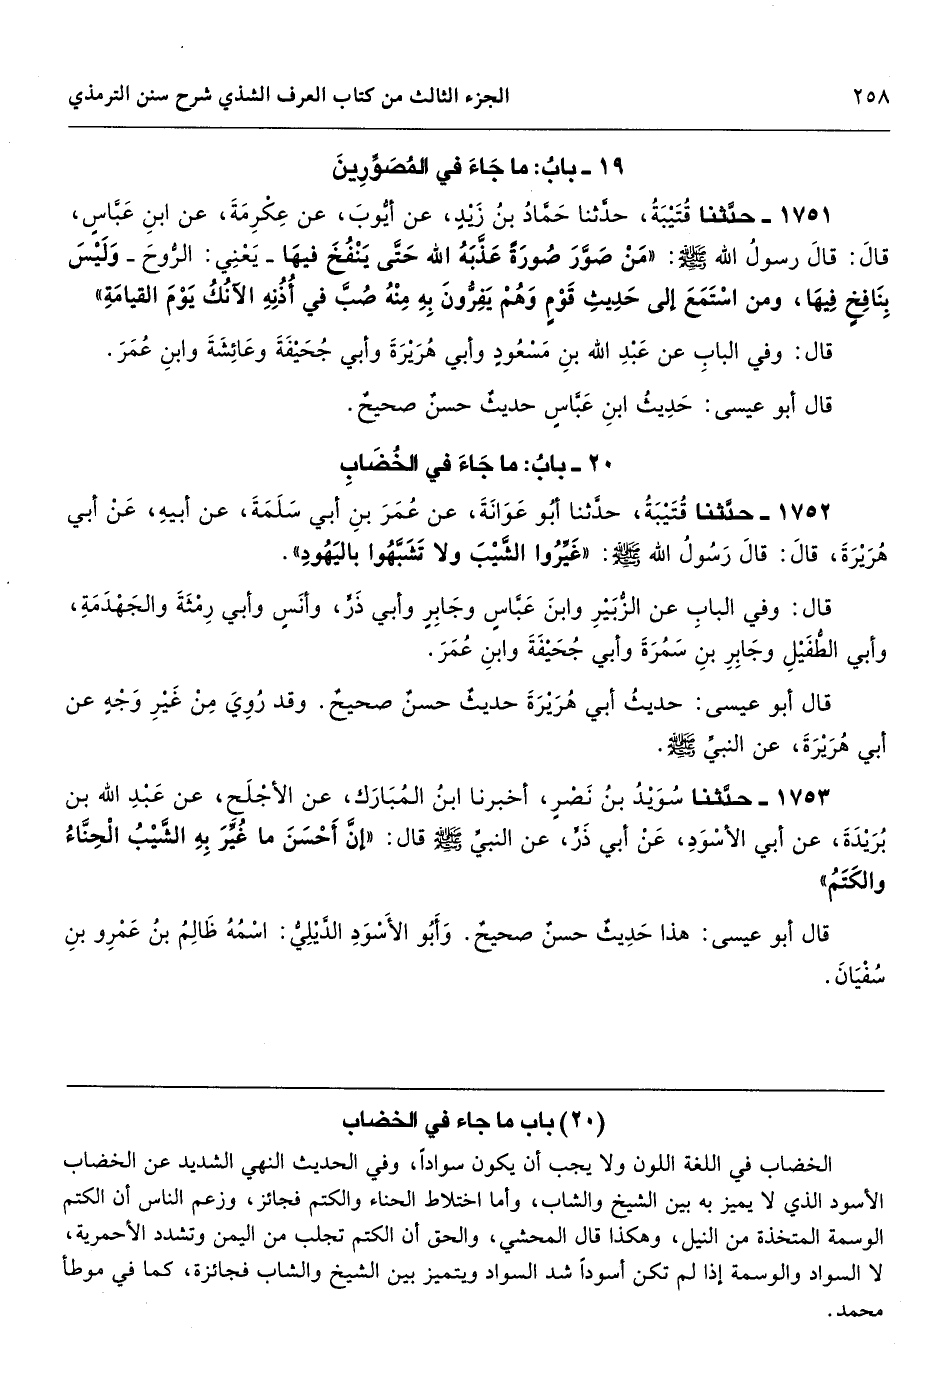 ٢٥٨ الجزء الثالث من كتاب العرف الشذي شرح سنن الترمذي
١٩ ـ بابُ: ما جَاءَ في المُصَوِّرِينَ
١٧٥١ ـ حدَّثنا قُتَيْبَةُ، حدَّثنا حَمَّادُ بنُ زَيْدٍ، عن أيُّوبَ، عن عِكْرِمَةَ، عن ابنِ عَبَّاسٍ،
قالَ: قالَ رسولُ الله ﷺ: «مَنْ صَوَّرَ صُورَةً عَذَّبَهُ الله حَتَّى يَنْفُخَ فيهَا ـ يَعْنِي: الرُّوحَ ـ وَلَيْسَ
بِنَافِخٍ فِيهَا، ومن اسْتَمَعَ إلى حَدِيثِ قَوْمٍ وَهُمْ يَفِرُّونَ بِهِ مِنْهُ صُبَّ في أُذُنِهِ الآنُكُ يَوْمَ القيامَةِ»
قال: وفي البابِ عن عَبْدِ الله بنِ مَسْعُودٍ وأبي هُرَيْرَةَ وأبي جُحَيْفَةَ وعَائِشَةَ وابنِ عُمَرَ.
قال أبو عيسى: حَدِيثُ ابنِ عَبَّاسٍ حديثٌ حسنٌ صحيحٌ.
٢٠ ـ بابُ: ما جَاءَ في الخُضَابِ
١٧٥٢ ـ حدَّثنا قُتَيْبَةُ، حدَّثنا أبُو عَوَانَةَ، عن عُمَرَ بنِ أبي سَلَمَةَ، عن أبيهِ، عَنْ أبي
هُرَيْرَةَ، قالَ: قالَ رَسُولُ الله ﷺ: «غَيِّرُوا الشَّيْبَ ولا تَشَبَّهُوا باليَهُودِ».
قال: وفي البابِ عن الزُّبَيْرِ وابنِ عَبَّاسٍ وجَابِرٍ وأبي ذَرٍّ، وأنَسٍ وأبي رِمْثَةَ والجَهْدَمَةِ،
وأبي الطُّفَيْلِ وجَابِرِ بنِ سَمُرَةَ وأبي جُحَيْفَةَ وابنِ عُمَرَ.
قال أبو عيسى: حديثُ أبي هُرَيْرَةَ حديثٌ حسنٌ صحيحٌ. وقد رُوِيَ مِنْ غَيْرِ وَجْهٍ عن
أبي هُرَيْرَةَ، عن النبيِّ ﷺ.
١٧٥٣ ـ حدَّثنا سُوَيْدُ بنُ نَصْرٍ، أخبرنا ابنُ المُبَارَكِ، عن الأجْلَحِ، عن عَبْدِ الله بن
بُرَيْدَةَ، عن أبي الأسْوَدِ، عَنْ أبي ذَرٍّ، عن النبيِّ ﷺ قال: «إنَّ أَحْسَنَ ما غُيِّرَ بِهِ الشَّيْبُ الْحِنَّاءُ
والكَتَمُ»
قال أبو عيسى: هذا حَدِيثٌ حسنٌ صحيحٌ. وَأَبُو الأَسْوَدِ الدَّيْلِيُّ: اسْمُهُ ظَالِمُ بنُ عَمْرِو بنِ
سُفْيَانَ.
(٢٠) باب ما جاء في الخضاب
الخضاب في اللغة اللون ولا يجب أن يكون سواداً، وفي الحديث النهي الشديد عن الخضاب
الأسود الذي لا يميز به بين الشيخ والشاب، وأما اختلاط الحناء والكتم فجائز، وزعم الناس أن الكتم
الوسمة المتخذة من النيل، وهكذا قال المحشي، والحق أن الكتم تجلب من اليمن وتشدد الأحمرية،
لا السواد والوسمة إذا لم تكن أسوداً شد السواد ويتميز بين الشيخ والشاب فجائزة، كما في موطأ
محمد.